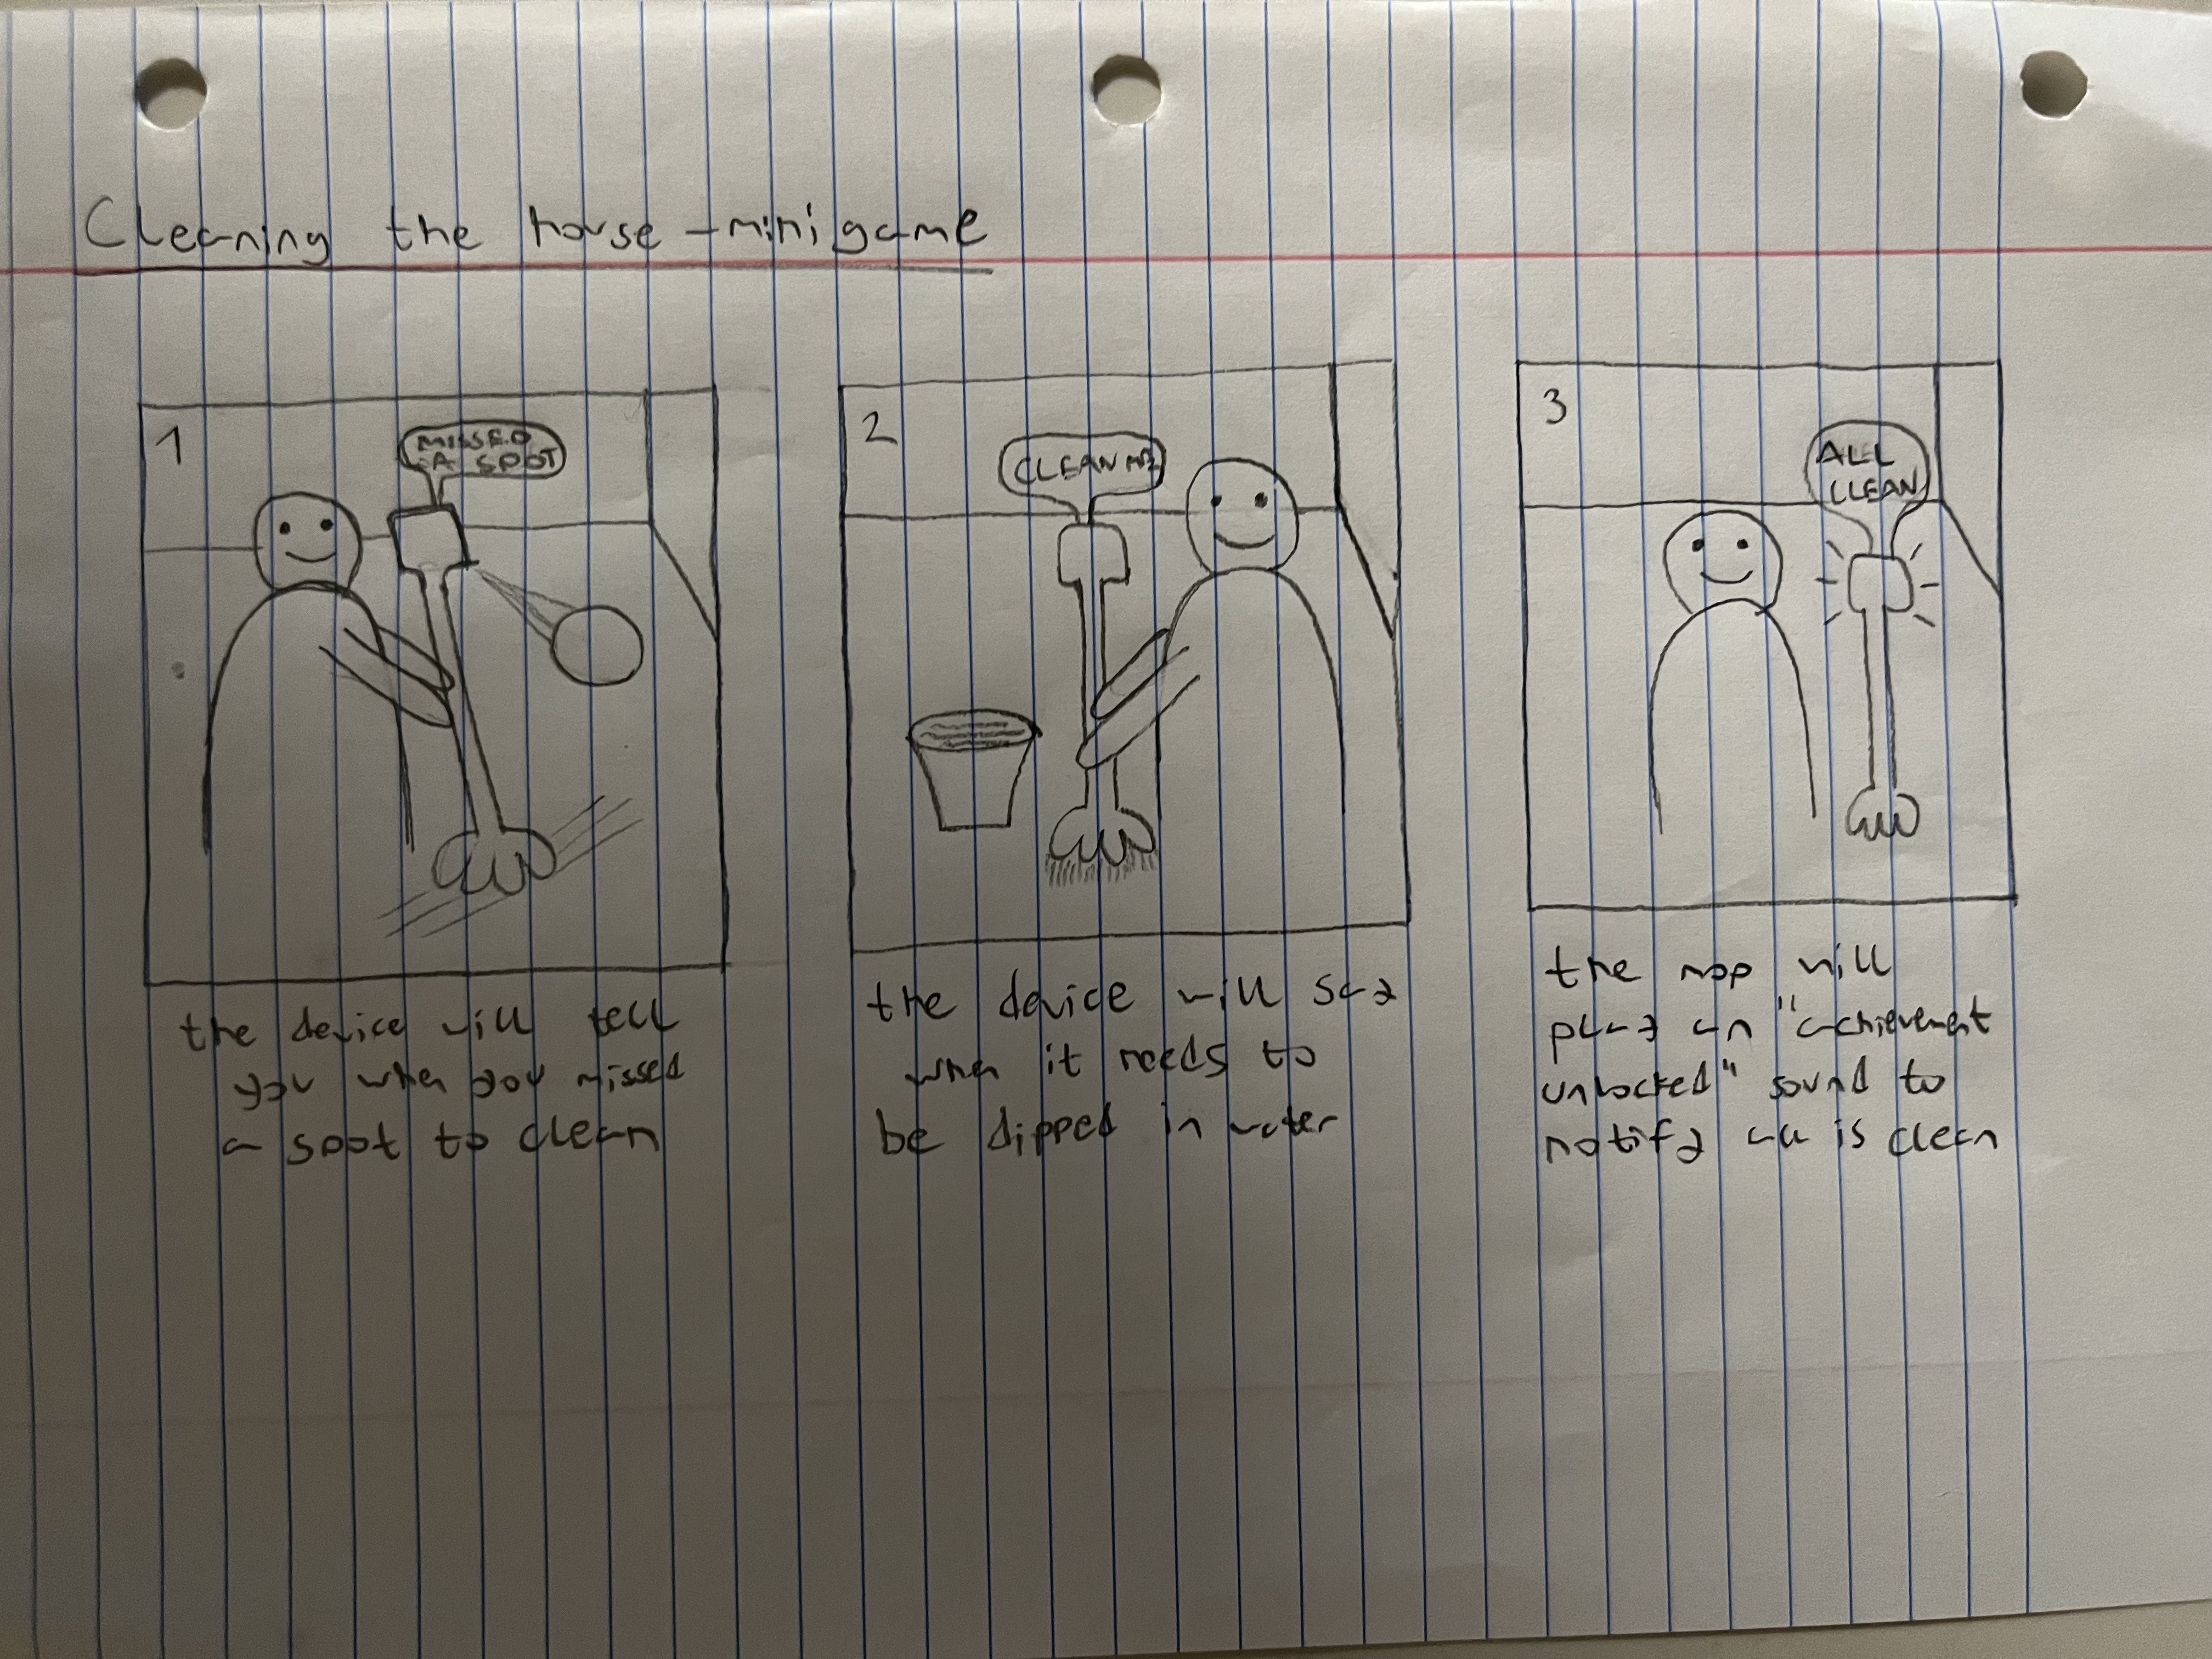 Cleaning the house - minigame
1
MISSED
A SPOT
the device will tell
you when you missed
a spot to clean
2
CLEAN ME
the device will say
when it needs to
be dipped in water
3
ALL
CLEAN
the mop will
play an "achievement
unlocked" sound to
notify all is clean